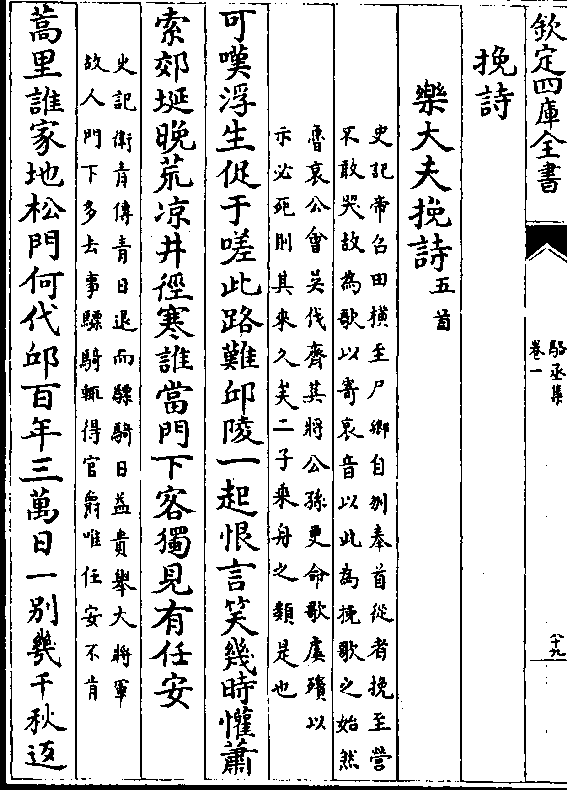 欽定四庫全書
駱丞集
卷一
挽詩
樂大夫挽詩五首
史記帝召田橫至尸鄉自刎奉首從者挽至營
不敢哭故為歌以寄哀音以此為挽歌之始然
魯哀公會吳伐齊其將公孫更命歌虞殯以
示必死則其來久矣二子乘舟之類是也
可嘆浮生促于嗟此路難邱陵一起恨言笑幾時懽蕭
索郊埏晚荒凉井徑寒誰當門下客獨見有任安
史記衛青傳青日退而驃騎日益貴舉大將軍
故人門下多去事驃騎輒得官爵唯任安不肯
蒿里誰家地松門何代邱百年三萬日一别幾千秋返